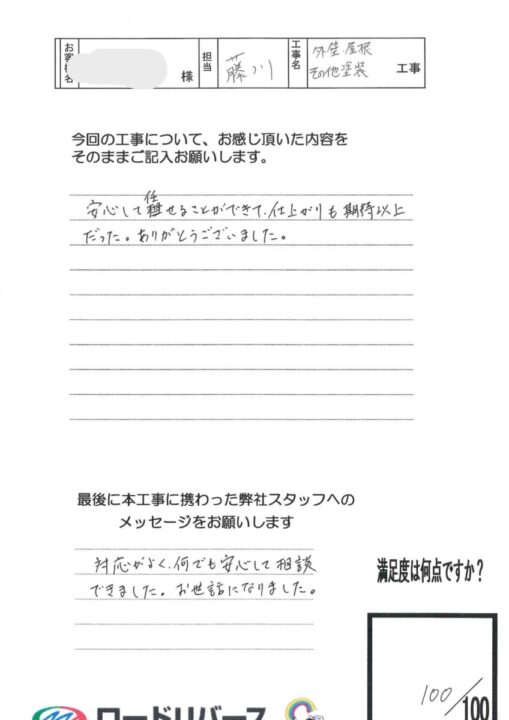 お客様名 様 担当 藤川 工事名 外壁・屋根 その他塗装 工事
今回の工事について、お感じ頂いた内容を
そのままご記入お願いします。
安心して任せることができて、仕上がりも期待以上
だった。ありがとうございました。
最後に本工事に携わった弊社スタッフへの
メッセージをお願いします
対応がよく、何でも安心して相談
できました。お世話になりました。
満足度は何点ですか？
100/100
ロードリバース